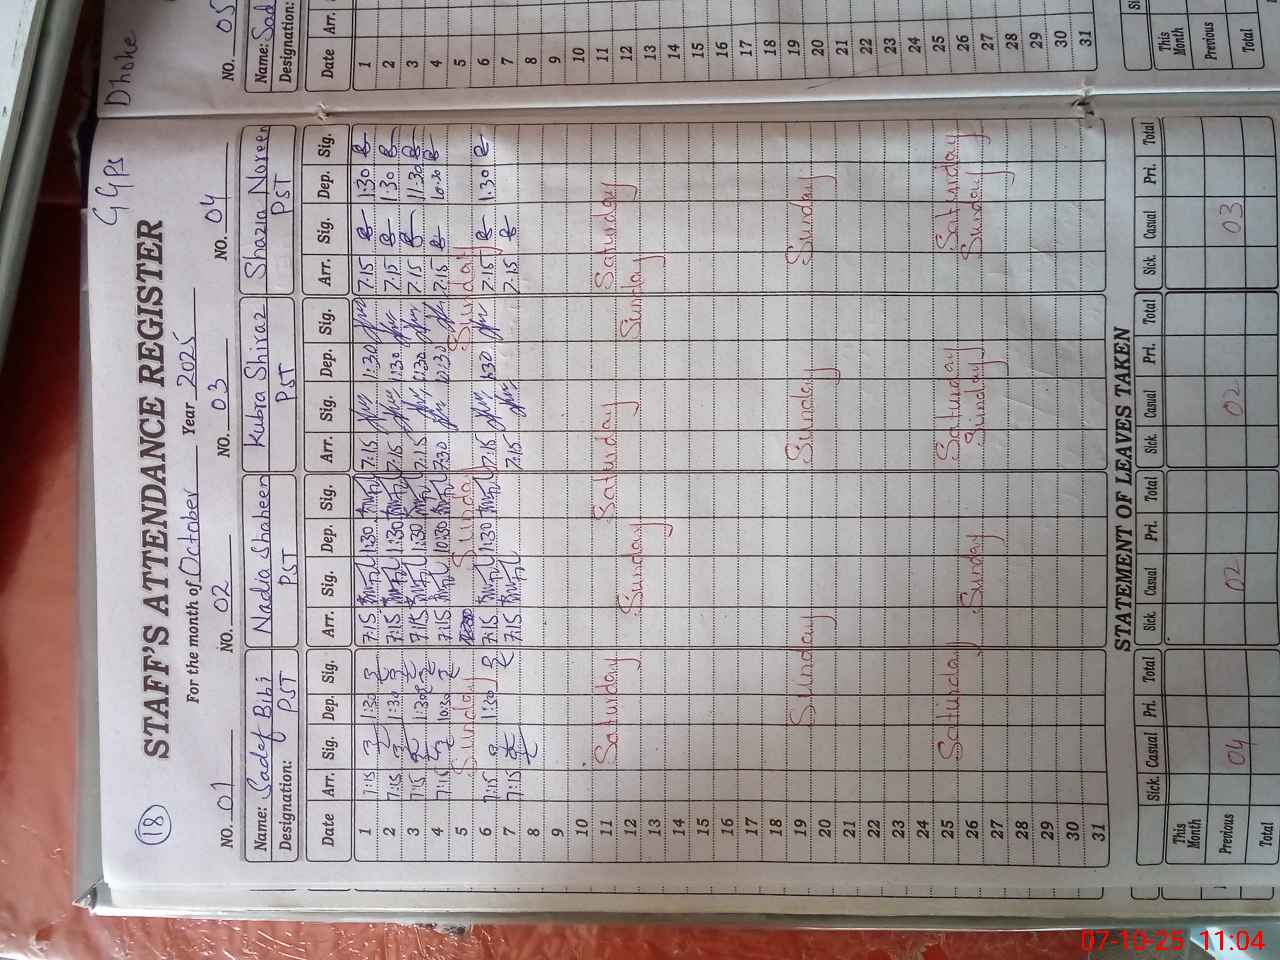 GGPS Dhoke
18
STAFF'S ATTENDANCE REGISTER
For the month of October Year 2025
NO. 01 NO. 02 NO. 03 NO. 04 NO. 05
Name: Sadef Bibi Nadia Shaheen Kubra Shiraz Shazia Noreen Name: Sad
Designation: PST PST PST PST Designation:
Date Arr. Sig. Dep. Sig. Arr. Sig. Dep. Sig. Arr. Sig. Dep. Sig. Arr. Sig. Dep. Sig. Date Arr.
1 7:15 1:30 7:15 1:30 7:15 1:30 7:15 1:30 1
2 7:15 1:30 7:15 1:30 7:15 1:30 7:15 1:30 2
3 7:15 1:30 7:15 1:30 7:15 11:30 3
4 7:15 10:30 7:15 10:30 7:30 10:30 7:15 10:30 4
5 Sunday Sunday Sunday Sunday 5
6 7:15 1:30 7:15 1:30 7:15 1:30 7:15 1:30 6
7 7:15 7:15 7:15 7:15 7
8 8
9 9
10 10
11 Saturday Saturday Saturday 11
12 Sunday Sunday 12
13 13
14 14
15 15
16 16
17 17
18 18
19 Sunday Sunday Sunday 19
20 20
21 21
22 22
23 23
24 24
25 Saturday Saturday Saturday 25
26 Sunday Sunday Sunday 26
27 27
28 28
29 29
30 30
31 31
STATEMENT OF LEAVES TAKEN
Sick. Casual Pri. Total Sick. Casual Pri. Total Sick. Casual Pri. Total Sick. Casual Pri. Total
This Month This Month
Previous 04 02 02 03 Previous
Total Total
07-10-25 11:04